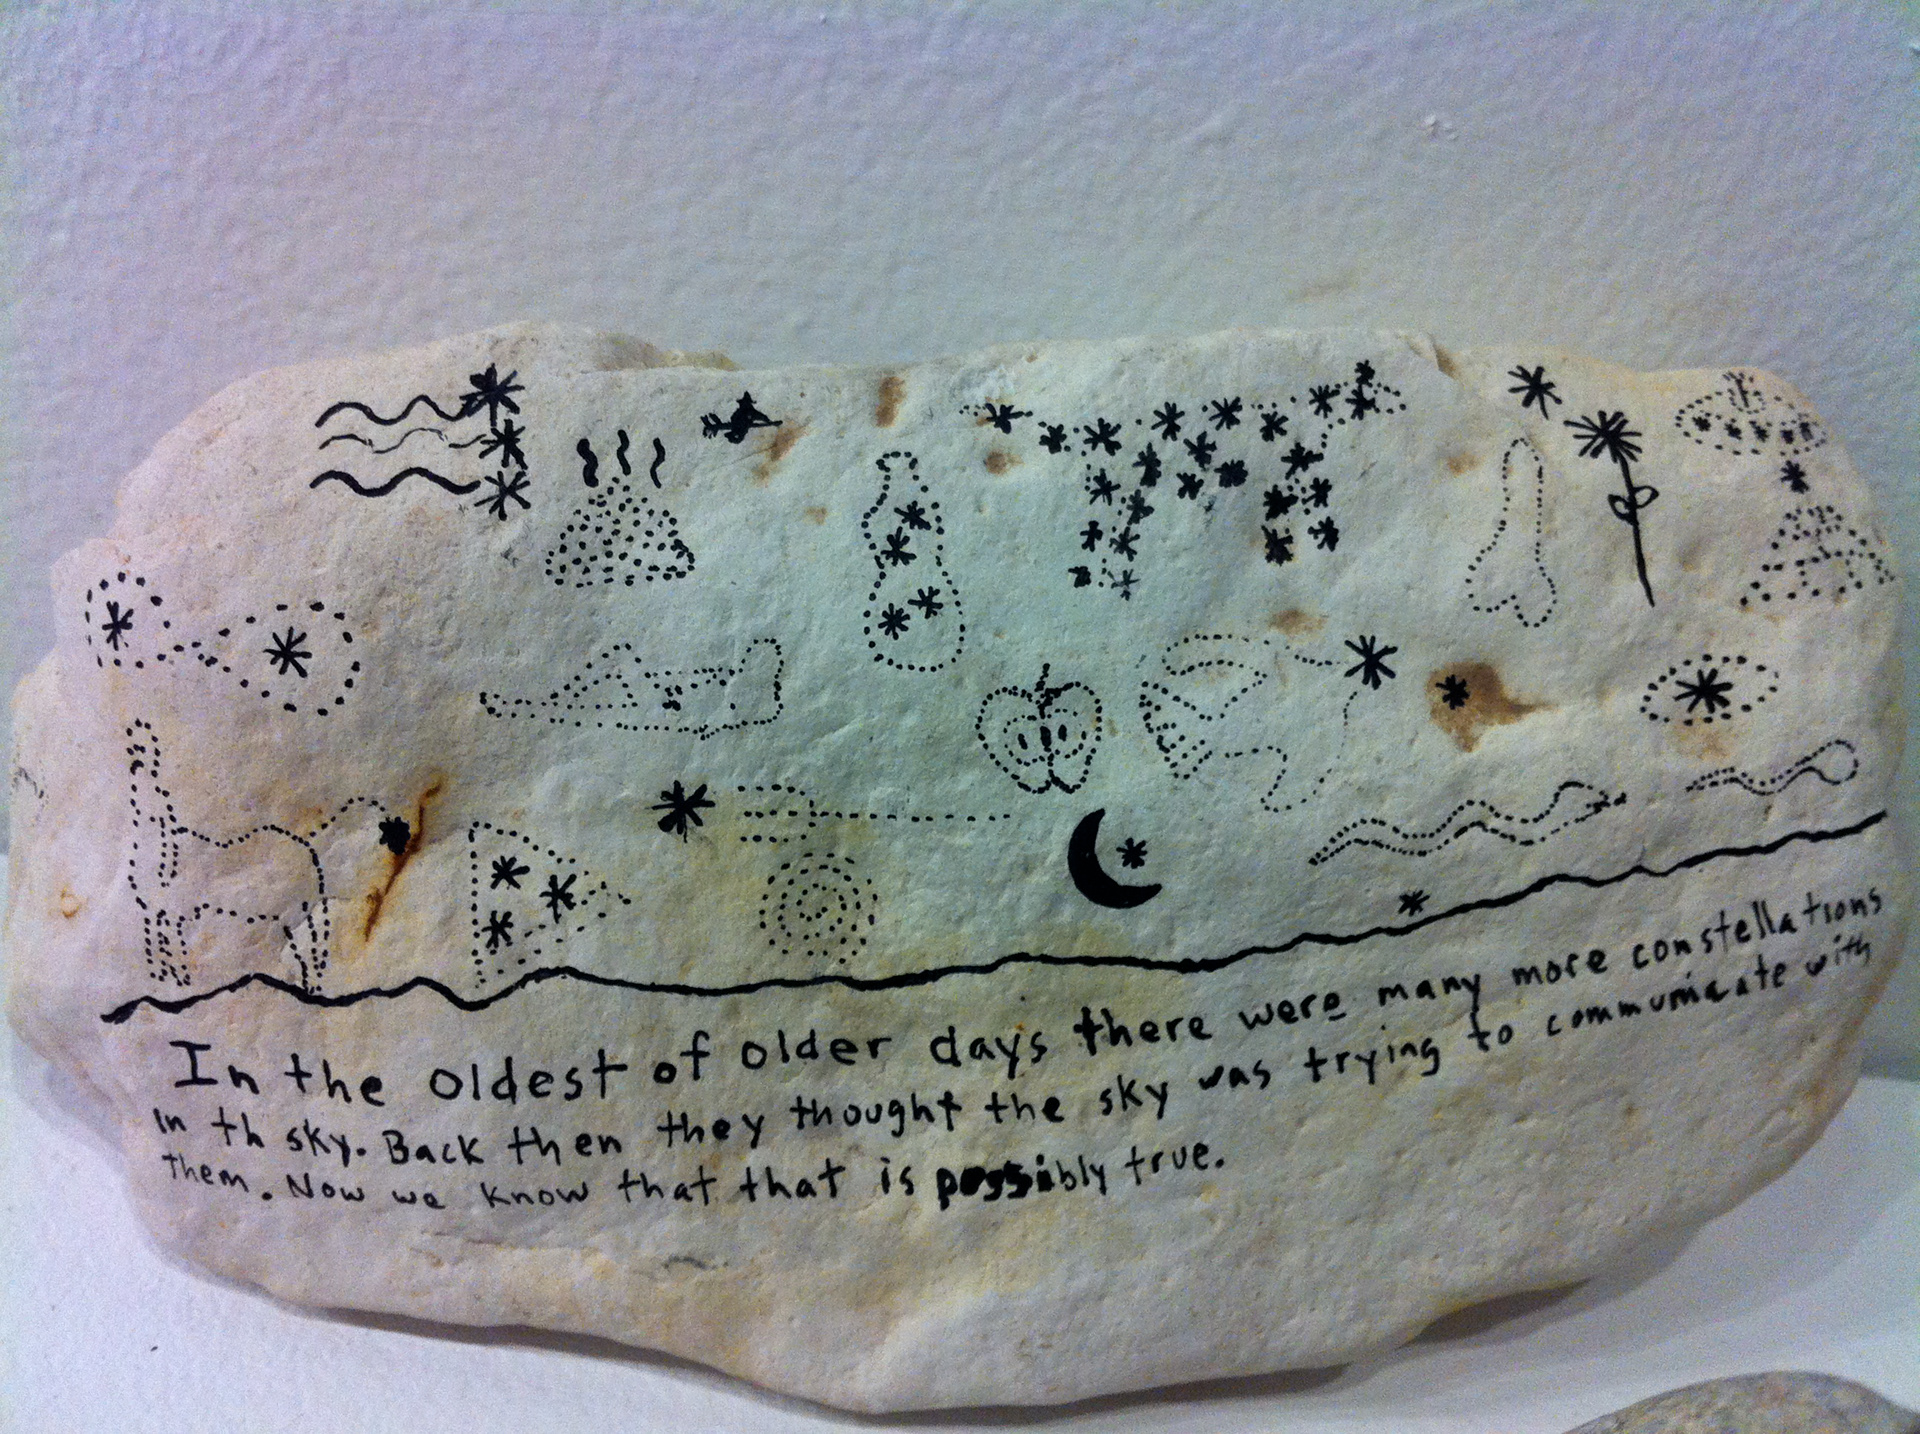 In the oldest of older days there were many more constellations
in th sky. Back then they thought the sky was trying to communicate with
them. Now we know that that is possibly true.